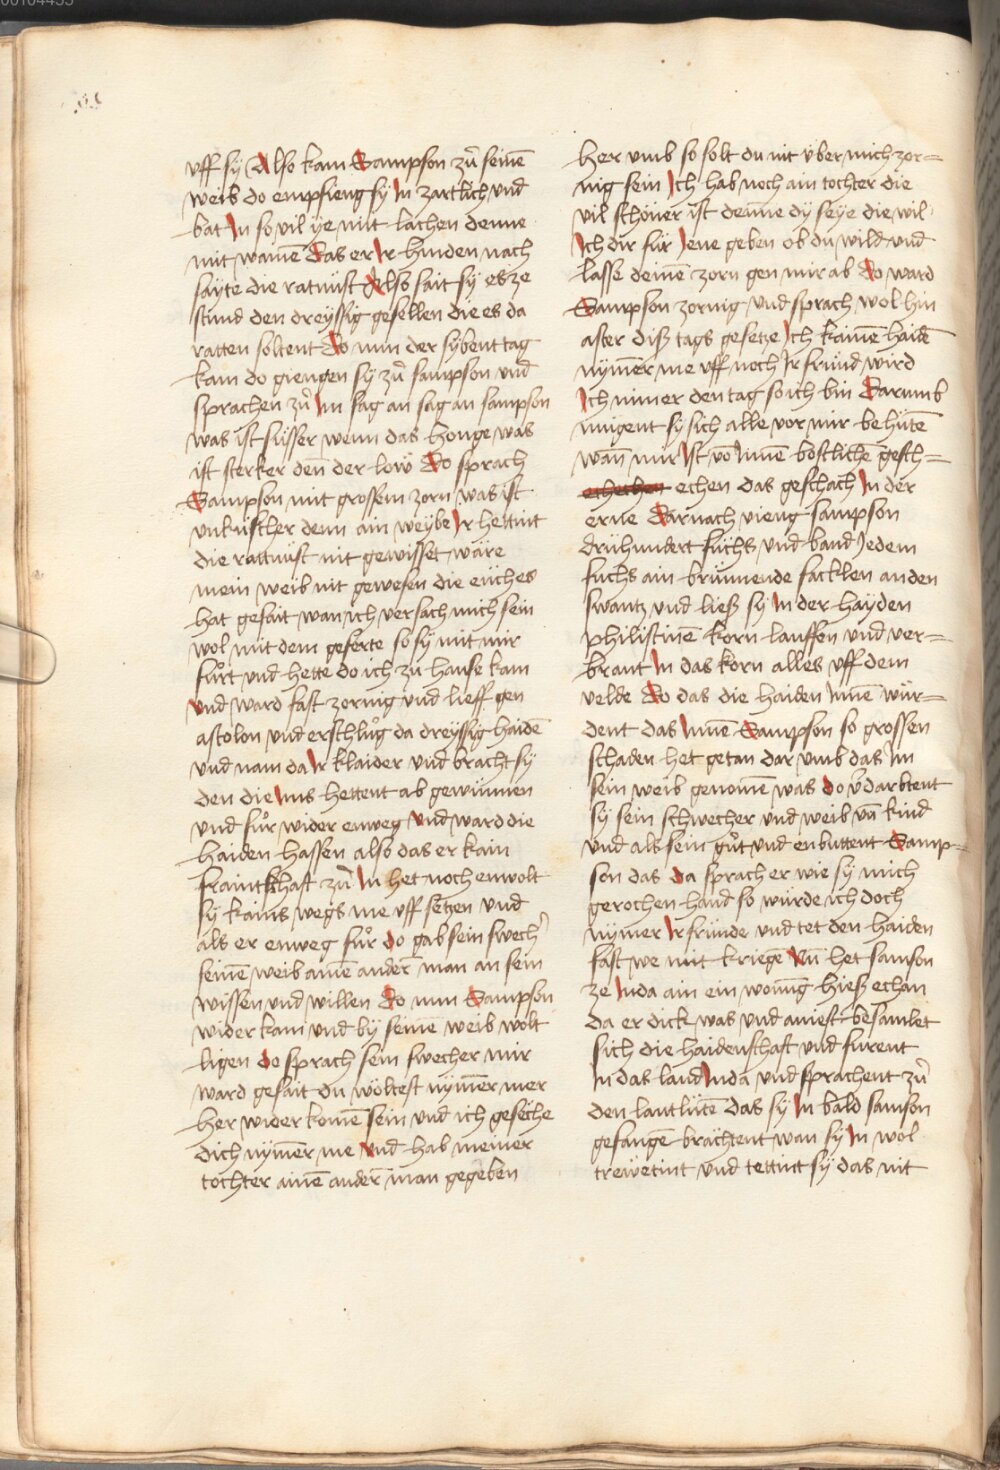 uff sy Also kam Sampson zů seinē
weib do empfieng sy In zartlich und
bat In so vil ye mit lachen denne
mit wainē Das er Ir hinden nach
sayte die ratnust Also sait sy es ze
stund den dreyssig gesellen die es da
ratten soltent Do nun der sybent tag
kam do giengen sy zů sampson und
sprachen zů Im sag an sag an sampson
was ist süsser wenn das honge was
ist sterker den der löw Do sprach
Sampson mit grossem zorn was ist
unküscher denn ain weybe Ir hettint
die rattnust nit gewisset wäre
mein weib nit gewesen die eüch es
hat gesait wan ich versach mich sein
wol mit dem geferte so sy mit mir
fůrt und hette do ich zů hause kam
und ward fast zornig und lieff gen
astolon und erschlůg da dreyssig haidē
und nam da Ir klaider und bracht sy
den die Ims hettent ab gewunnen
und fůr wider enweg und ward die
haiden hassen also das er kain
fraintschaft zů In het noch enwolt
sy kains wegs me uff setzen und
als er enweg fůr do gab sein swech'
seinē weib ainē andern man an sein
wissen und willen Do nun Sampson
wider kam und by seinem weib wolt
ligen do sprach sein swecher mir
ward gesait du wöltest nymēr mer
her wider komē sein und ich gesēhe
dich nymēr me und hab meiner
tochter ainē andern man gegeben
her umb so solt du nit über mich zor=
nig sein Ich hab noch ain tochter die
vil schöner ist denne dy seye die wil
Ich dir für Jene geben ob du wild und
lasse deinē zorn gen mir ab Do ward
Sampson zornig und sprach wol hin
after diss tags gesetze Ich kainē haidē
nymēr me uff noch Ir fründ wird
Ich nimer den tag so ich bin Darumb
mügent sy sich alle vor mir behütē
wan mir Ist vō Innē böstlichē gesch=
echechen echen das geschach In der
erne Darnach vieng sampson
drühundert füchs und band Jedem
fuchs ain brünnende facklen an den
swantz und liess sy In der hayden
philistinē korn lauffen und ver=
brant In das korn alles uff dem
velde Do das die haiden Innē wur=
dent das Innē Sampson so grossen
schaden het getan dar umb das Im
sein weib genomē was do v̄darbtent
sy sein schwecher und weib vn̄ kind
und als sein gůt und enbuttent Samp=
son das da sprach er wie sy mich
gerochen hand so würde ich doch
nymer Ir fründe und tet den haiden
fast we mit kriegē Nū het samson
ze Inda ain ein wonūg hiess echan
da er dick was und aniest besamlet
sich die haidenschaft und furent
In das land Inda und sprachent zů
den lantlütē das sy In bald samson
gefangē brächtent wan sy In wol
trewetint und tettint sy das nit